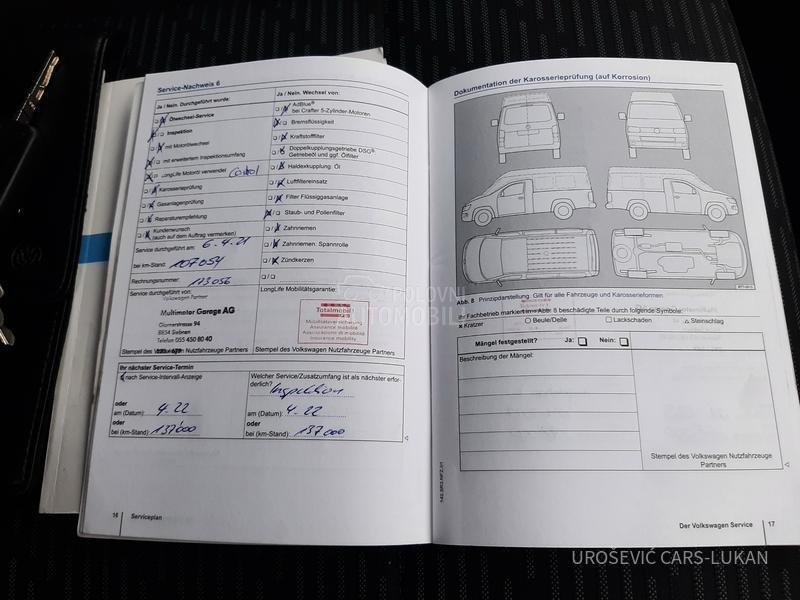 Service-Nachweis 6
Ja / Nein. Durchgeführt wurde:
Ölwechsel-Service
Inspektion
mit Motorölwechsel
mit erweitertem Inspektionsumfang
LongLife Motoröl verwendet
Karosserieprüfung
Gasanlagenprüfung
Reparaturempfehlung
Kundenwunsch
(auch auf dem Auftrag vermerken)
Service durchgeführt am: 6-4.21
bei km-Stand: 107054
Rechnungsnummer: 113056
Service durchgeführt von:
Volkswagen Partner
Multimotor Garage AG
Glarnerstrasse 94
8854 Siebnen
Telefon 055 450 80 40
Stempel des Volkswagen Nutzfahrzeuge Partners
Ja / Nein. Wechsel von:
AdBlue®
bei Crafter 5-Zylinder-Motoren
Bremsflüssigkeit
Kraftstofffilter
Doppelkupplungsgetriebe DSG®
Getriebeöl und ggf. Ölfilter
Haldexkupplung: Öl
Luftfiltereinsatz
Filter Flüssiggasanlage
Staub- und Pollenfilter
Zahnriemen
Zahnriemen: Spannrolle
Zündkerzen
LongLife Mobilitätsgarantie:
Totalmobil!
Mobilitätsversicherung
Assurance mobilité
Assicurazione di mobilità
Insurance mobility
Stempel des Volkswagen Nutzfahrzeuge Partners
Ihr nächster Service-Termin
nach Service-Intervall-Anzeige
oder
am (Datum): 4.22
oder
bei (km-Stand): 137000
Welcher Service/Zusatzumfang ist als nächster erfor-
derlich?
Inspektion
am (Datum): 4-22
oder
bei (km-Stand): 137000
16 Serviceplan
Dokumentation der Karosserieprüfung (auf Korrosion)
Abb. 8 Prinzipdarstellung. Gilt für alle Fahrzeuge und Karosserieformen.
Ihr Fachbetrieb markiert in Abb. 8 beschädigte Teile durch folgende Symbole:
× Kratzer ○ Beule/Delle □ Lackschaden △ Steinschlag
Mängel festgestellt? Ja: Nein:
Beschreibung der Mängel:
Stempel des Volkswagen Nutzfahrzeuge
Partners
142.5R3.NFZ.01
Der Volkswagen Service 17
POLOVNI
AUTOMOBILI
UROŠEVIĆ CARS-LUKAN